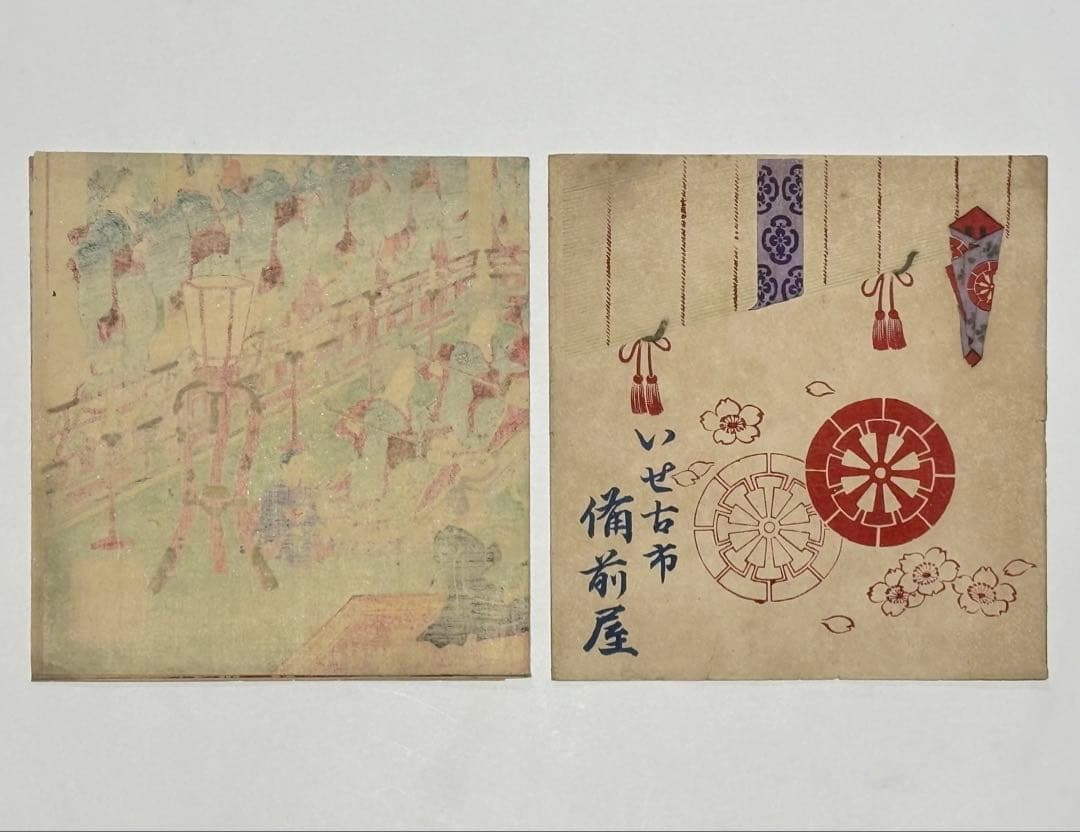 いせ古市
備前屋